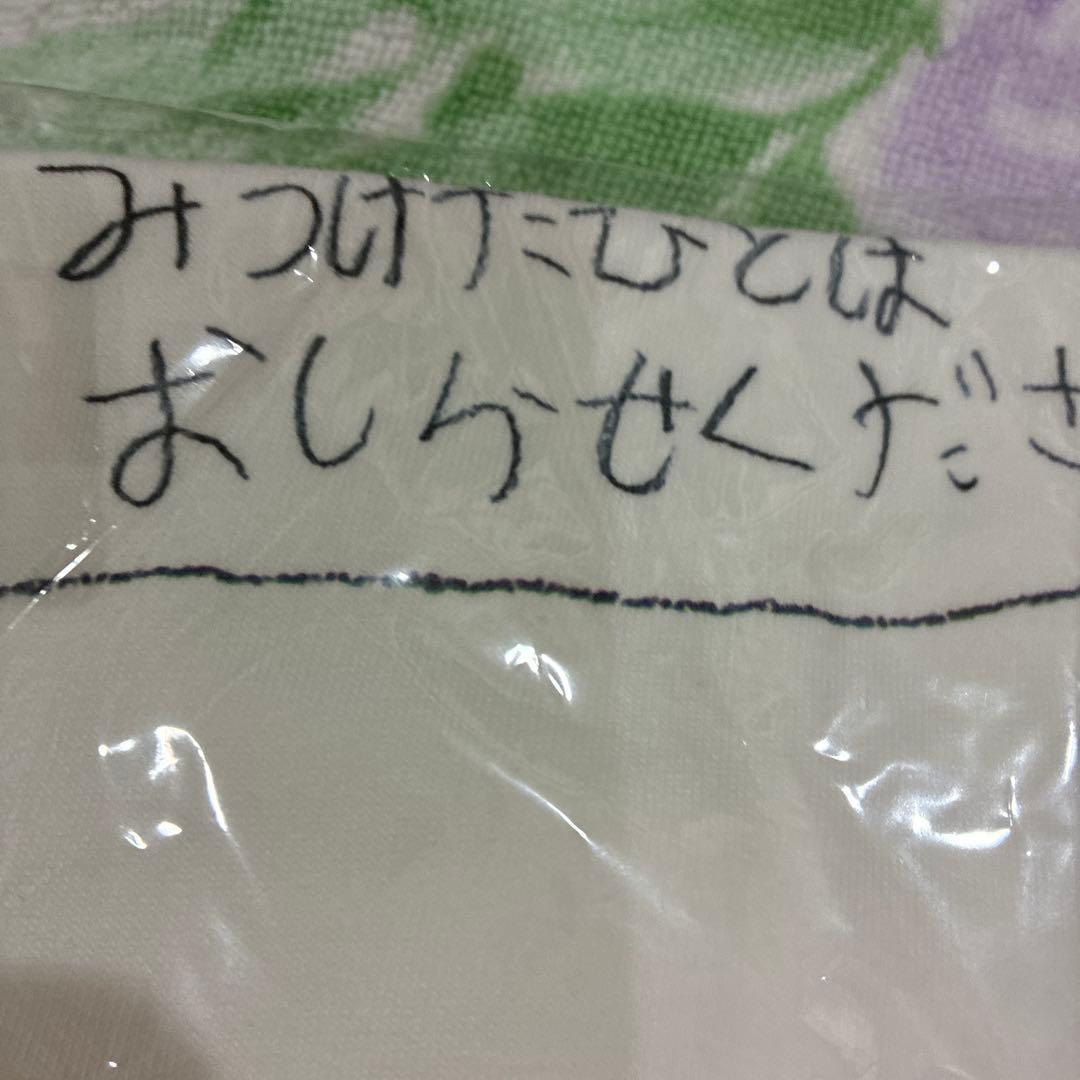 みつけたひとは
おしらせくださ